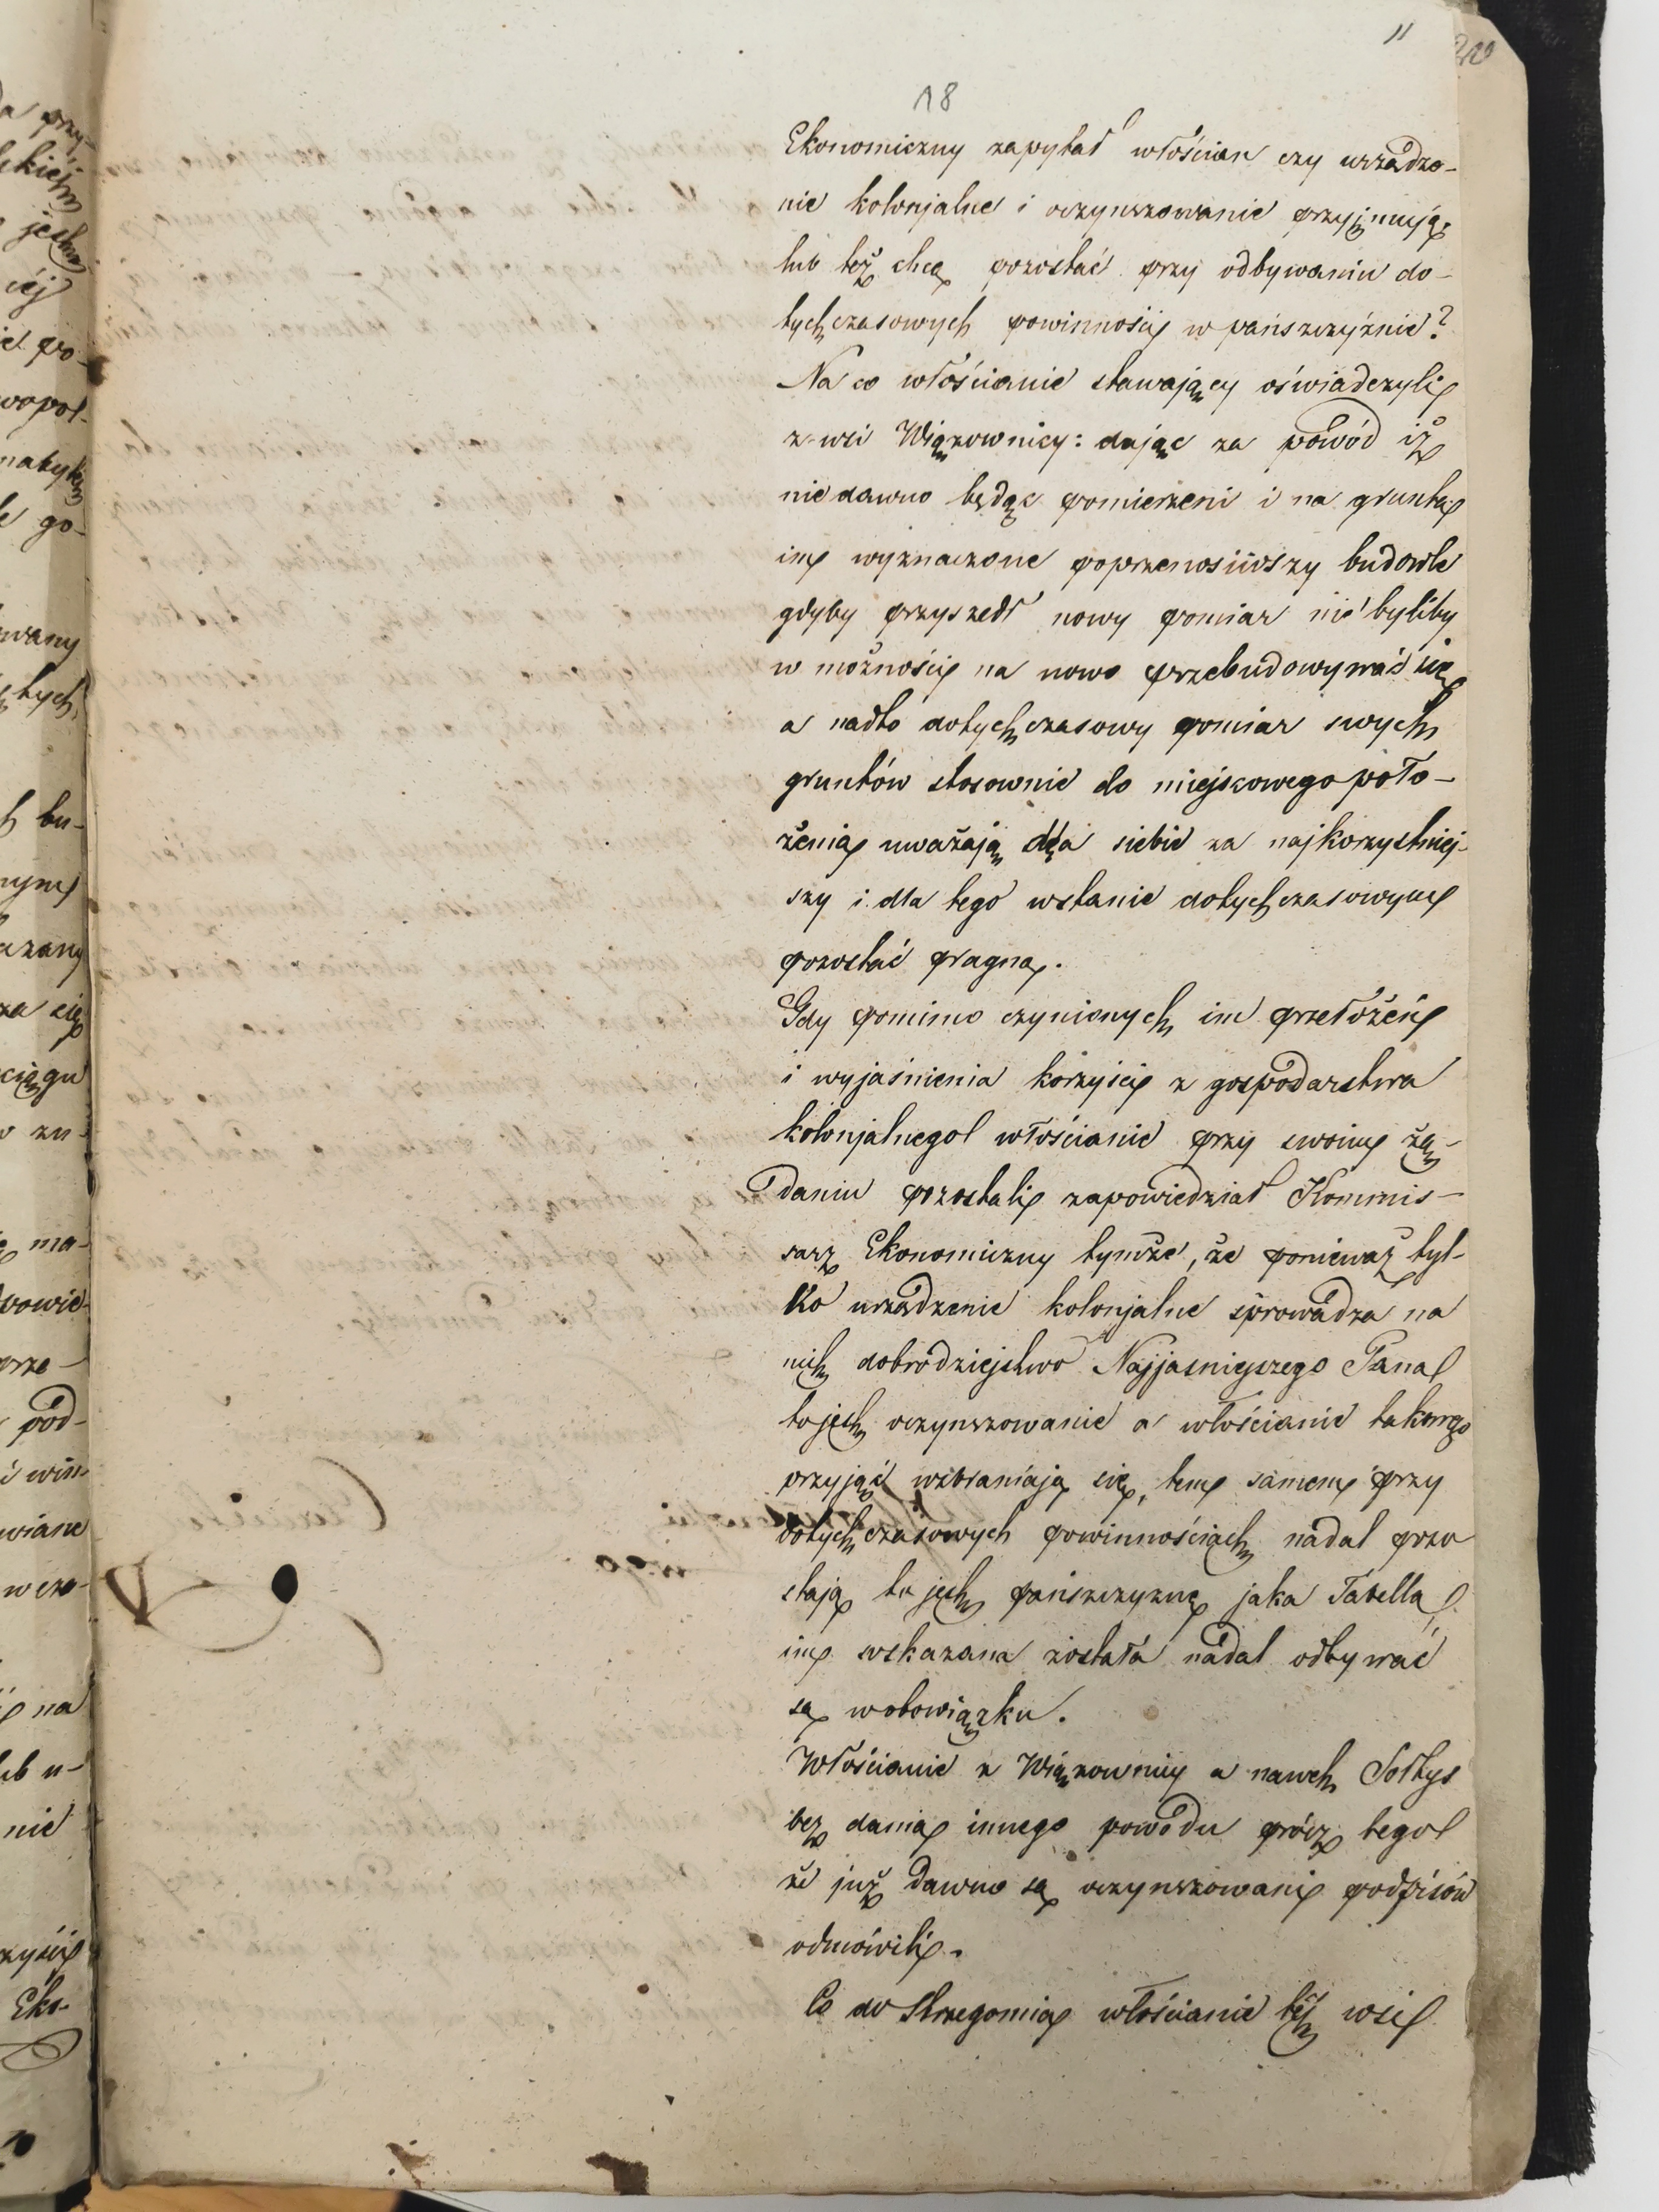 11
18
Ekonomiczny zapytał włościan czy urządze-
nie kolonjalne i oczynszowanie przyjmują,
lub też chcą pozostać przy odbywaniu do-
tychczasowych powinności w pańszczyźnie?
Na co włościanie stawający oświadczyli
z wsi Wiązownicy: dając za powód iż
niedawno będąc pomierzeni i na grunta
im wyznaczone poprzenosiwszy budowle
gdyby przyszedł nowy pomiar nie byliby
w możności na nowo przebudowywać się
a nadto dotychczasowy pomiar swych
gruntów stosownie do miejscowego poło-
żenia uważają dla siebie za najkorzystniej-
szy i dla tego wstanie dotychczasowym
pozostać pragną.
Gdy pomimo czynionych im przełożeń
i wyjaśnienia korzyści z gospodarstwa
kolonjalnego włościanie przy swoim żą-
daniu pozostali zapowiedział Kommis-
sarz Ekonomiczny tymże, że ponieważ tyl-
ko urządzenie kolonjalne sprowadza na
nich dobrodziejstwo Najjasniejszego Pana
to jest oczynszowanie a włościanie takowego
przyjąć wzbraniają się, tem samem przy
dotychczasowych powinnościach nadal pozo
stają to jest pańszczyznę jaka Tabellą
im wskazana została nadal odbywać
są wobowiązku.
Włościanie z Wiązownicy a nawet Sołtys
bez dania innego powodu prócz tego
że już dawno są oczynszowani podpisów
odmówili.
Co do Strzegomia włościanie tej wsi
przy
jest
ciej
ie po-
go-
wany
tych
bu-
nym
za się
ciągu
ma-
powie-
prze-
pod-
wiane
na
lub u-
nie
Eko-